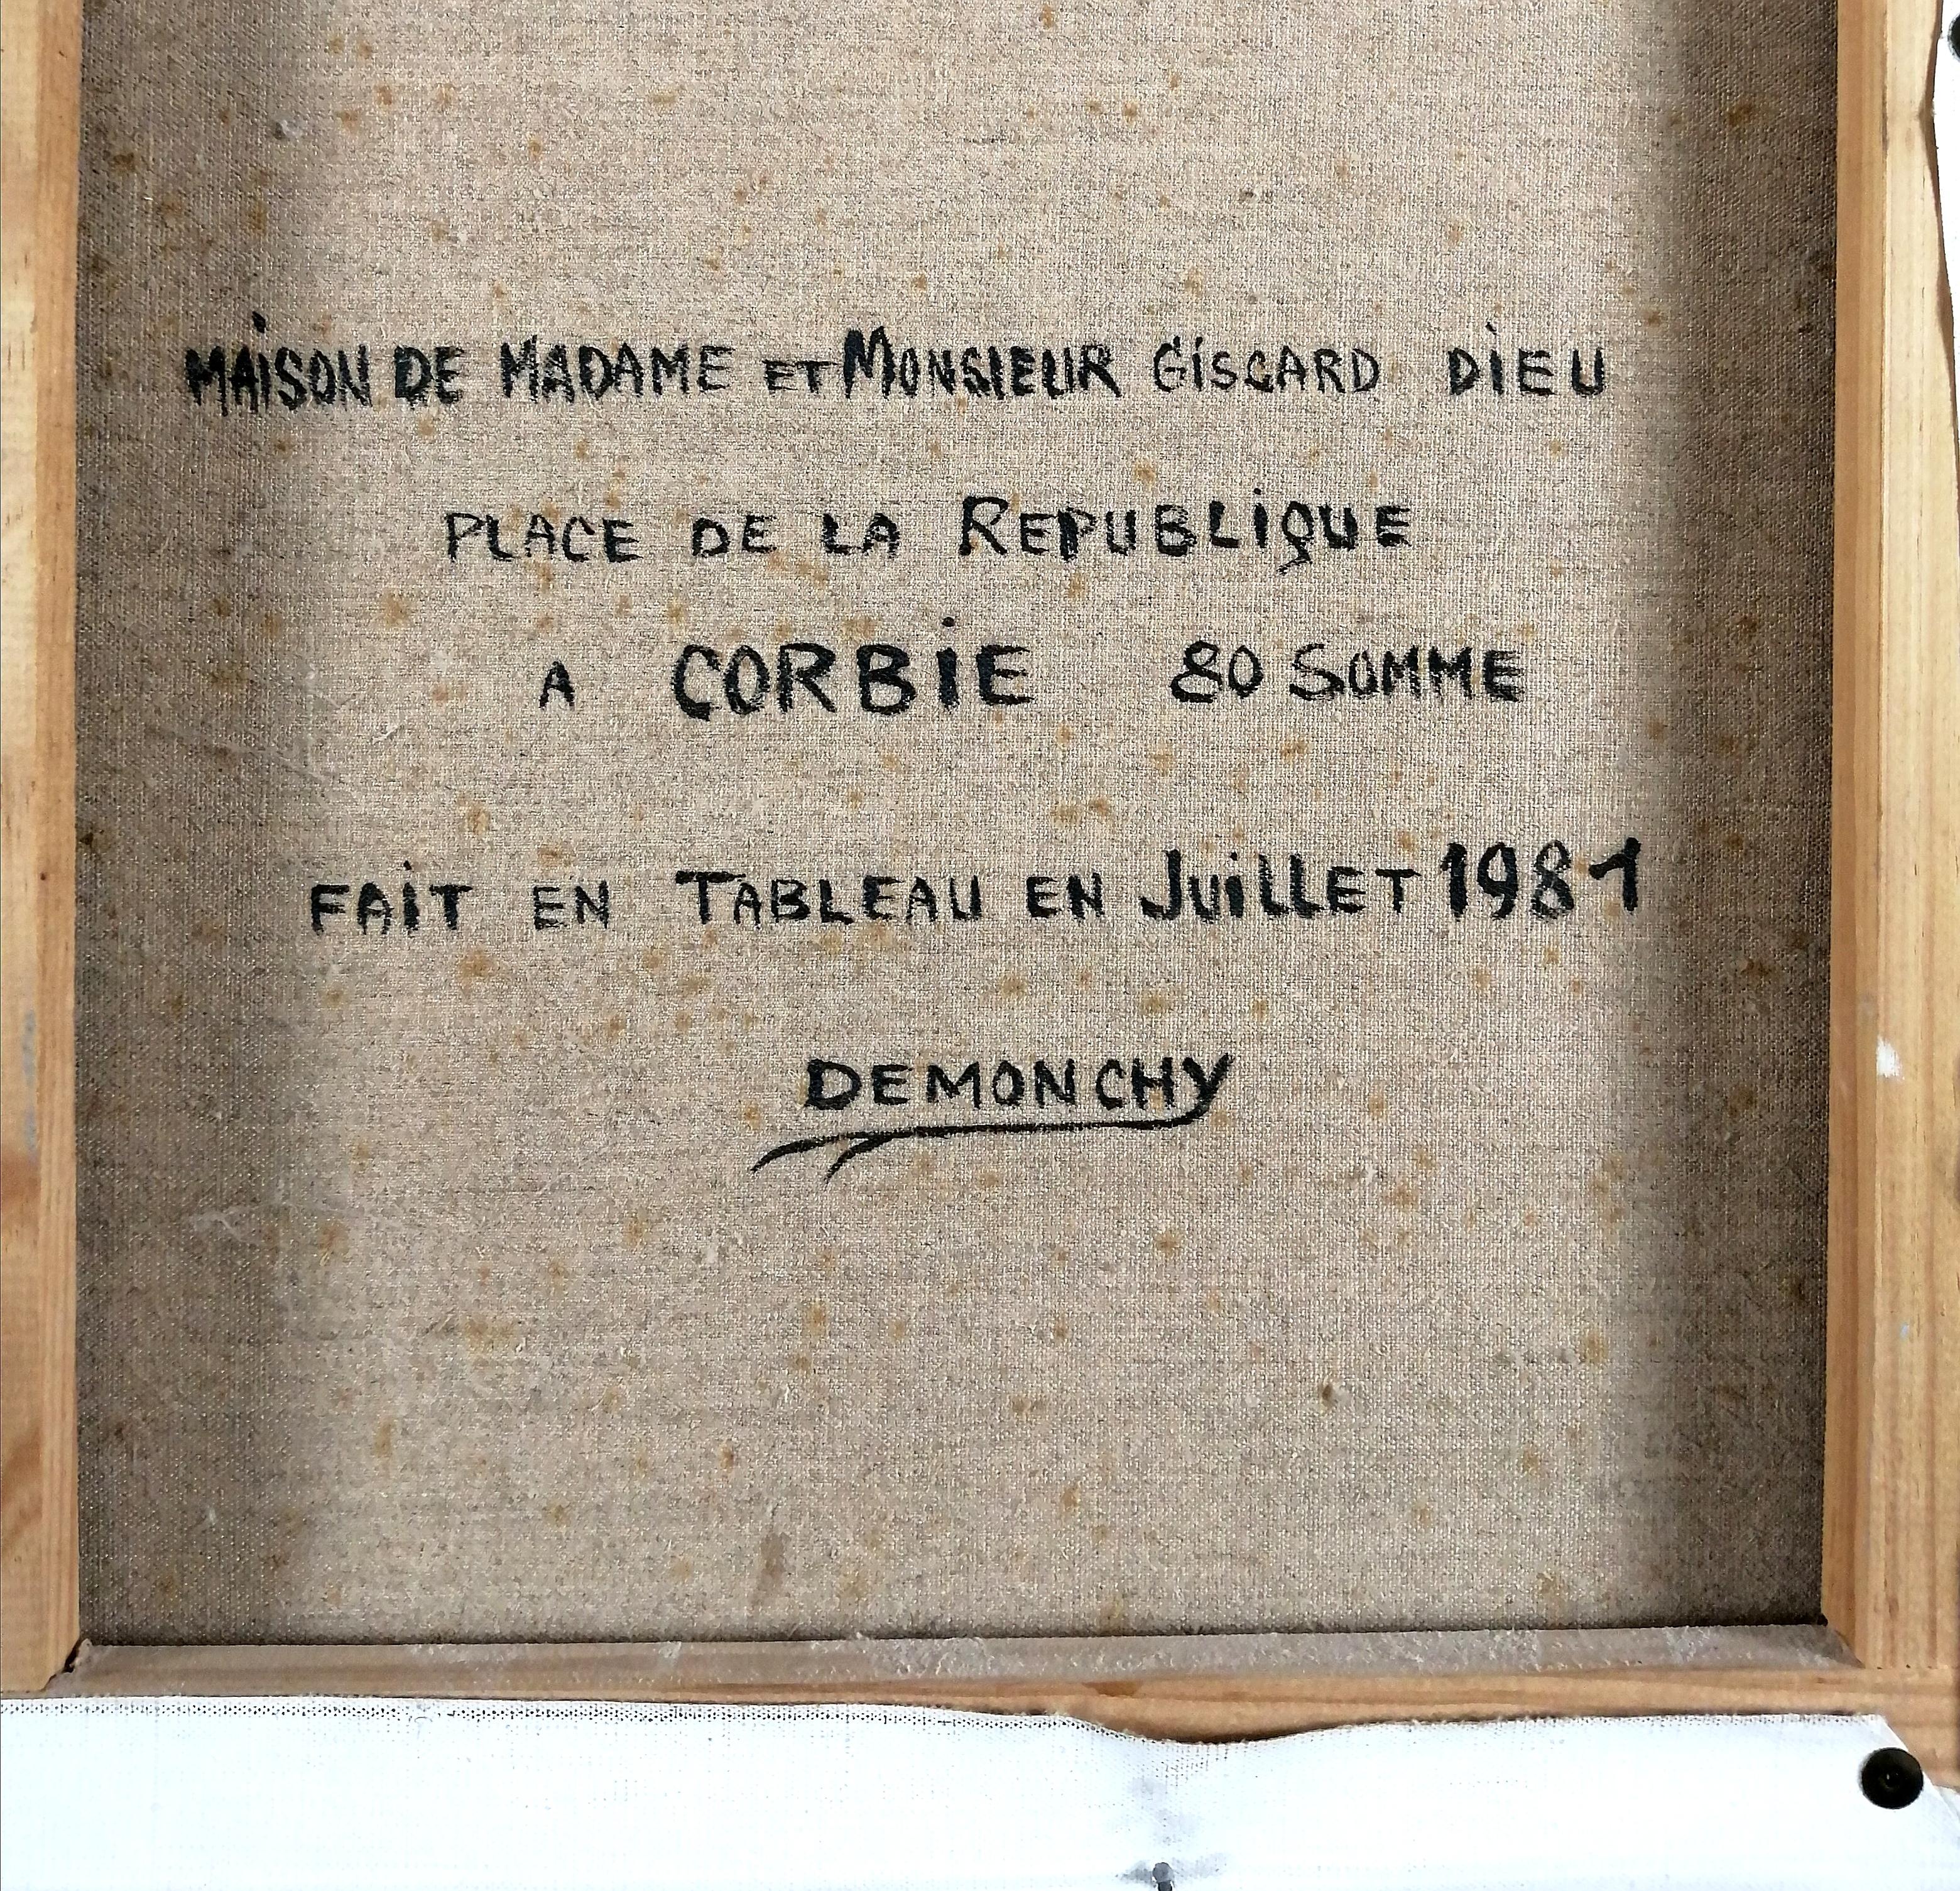 MAISON DE MADAME ET MONSIEUR GISCARD DIEU
PLACE DE LA REPUBLIQUE
A CORBIE 80 SOMME
FAIT EN TABLEAU EN JUILLET 1981
DEMONCHY